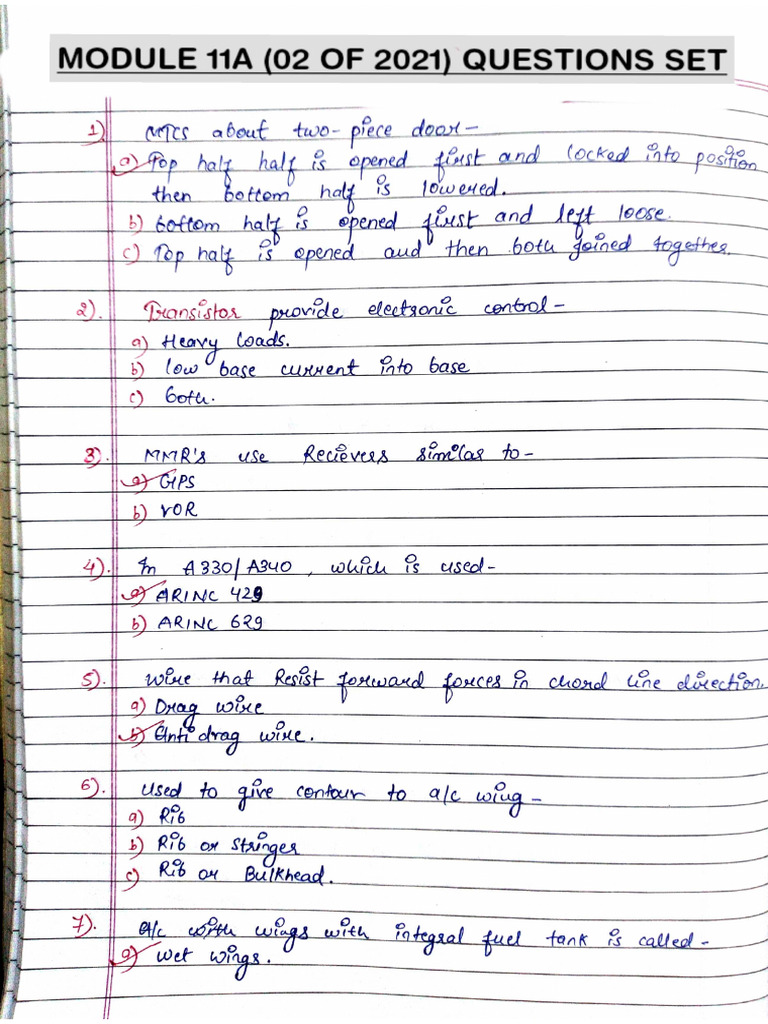 MODULE 11A (02 OF 2021) QUESTIONS SET
1) MTCS about two-piece door-
a) Top half half is opened first and locked into position
then bottom half is lowered.
b) bottom half is opened first and left loose.
c) Top half is opened and then both joined together.
2). Transistor provide electronic control-
a) Heavy loads.
b) low base current into base
c) both.
3). MMR's use Recievers similar to-
a) GPS
b) VOR
4). In A330/A340, which is used-
a) ARINC 429
b) ARINC 629
5). wire that Resist forward forces in chord line direction.
a) Drag wire
b) Anti drag wire.
6). used to give contour to a/c wing-
a) Rib
b) Rib or stringer
c) Rib or Bulkhead.
7). A/c with wings with integral fuel tank is called-
a) wet wings.